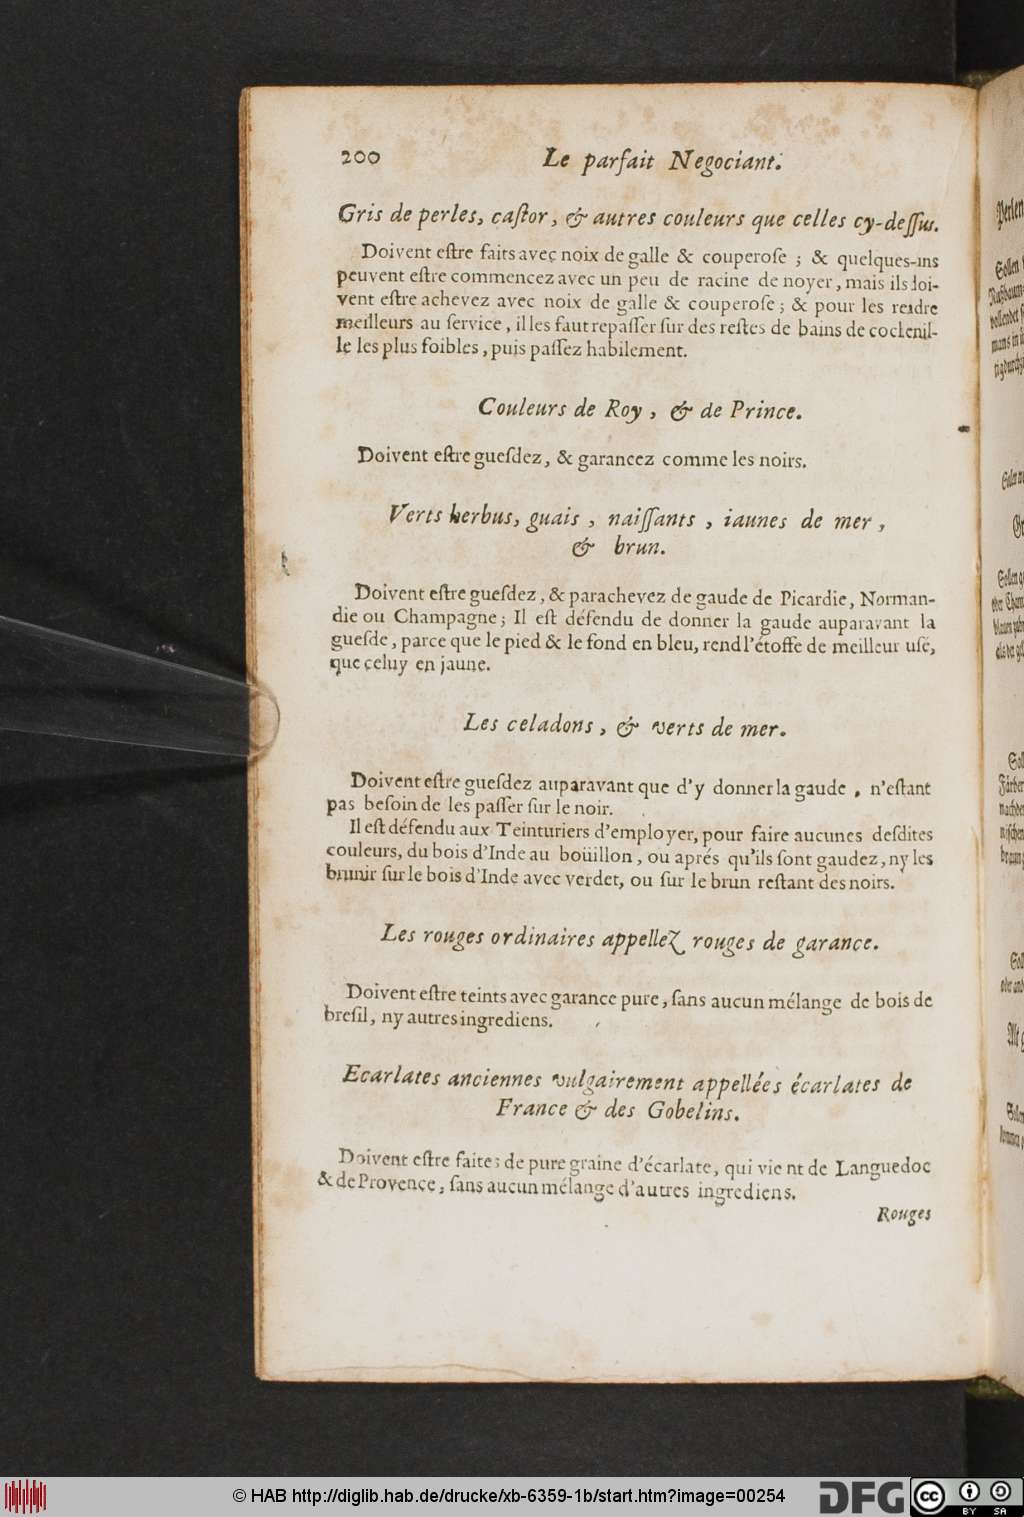 200 Le parfait Negociant.
Gris de perles, caſtor, & autres couleurs que celles cy-deſſus.
Doivent eſtre faits avec noix de galle & couperoſe ; & quelques-uns
peuvent eſtre commencez avec un peu de racine de noyer, mais ils doi-
vent eſtre achevez avec noix de galle & couperoſe ; & pour les rendre
meilleurs au ſervice, il les faut repaſſer ſur des reſtes de bains de cochenil-
le les plus foibles, puis paſſez habilement.
Couleurs de Roy, & de Prince.
Doivent eſtre gueſdez, & garancez comme les noirs.
Verts herbus, guais, naiſſants, iaunes de mer,
& brun.
Doivent eſtre gueſdez, & parachevez de gaude de Picardie, Norman-
die ou Champagne; Il eſt défendu de donner la gaude auparavant la
gueſde, parce que le pied & le fond en bleu, rend l'étoffe de meilleur uſé,
que celuy en jaune.
Les celadons, & verts de mer.
Doivent eſtre gueſdez auparavant que d'y donner la gaude, n'eſtant
pas beſoin de les paſſer ſur le noir.
Il eſt défendu aux Teinturiers d'employer, pour faire aucunes deſdites
couleurs, du bois d'Inde au boüillon, ou aprés qu'ils ſont gaudez, ny les
brunir ſur le bois d'Inde avec verdet, ou ſur le brun reſtant des noirs.
Les rouges ordinaires appellez rouges de garance.
Doivent eſtre teints avec garance pure, ſans aucun mélange de bois de
breſil, ny autres ingrediens.
Ecarlates anciennes vulgairement appellées écarlates de
France & des Gobelins.
Doivent eſtre faites de pure graine d'écarlate, qui vient de Languedoc
& de Provence, ſans aucun mélange d'autres ingrediens.
Rouges
© HAB http://diglib.hab.de/drucke/xb-6359-1b/start.htm?image=00254
DFG cc BY SA